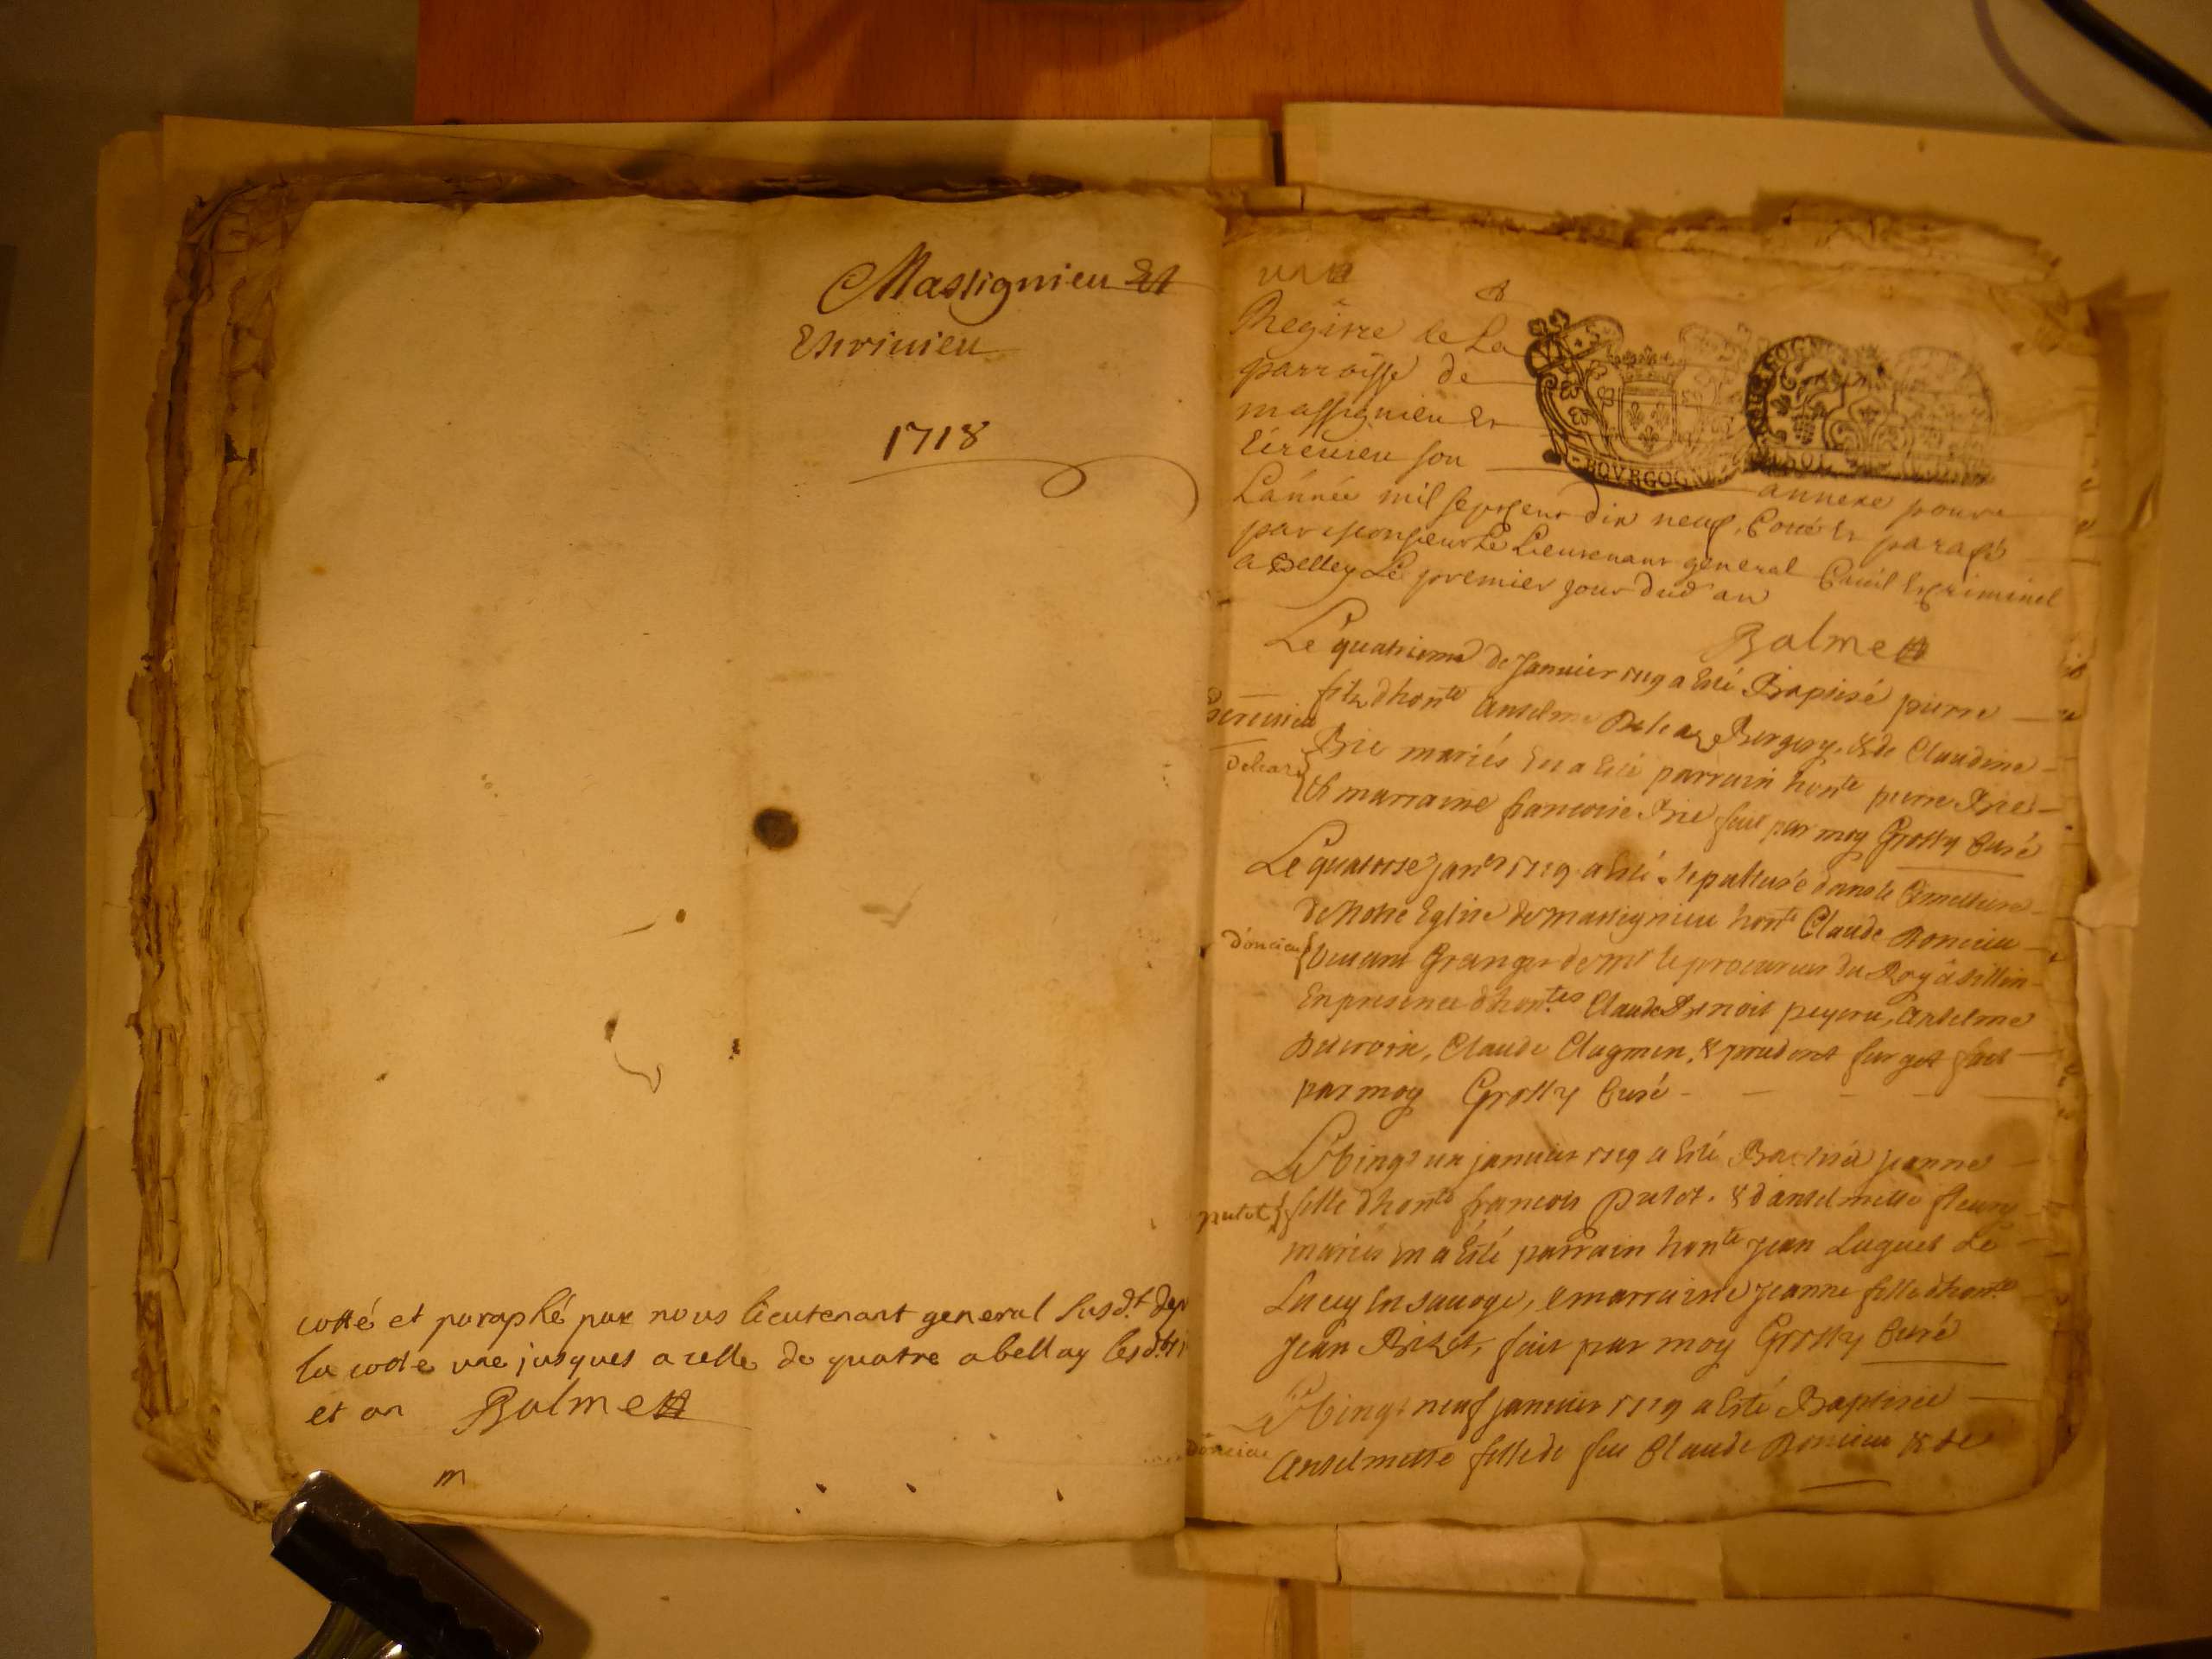 Massignieu Et
1718
cotté et paraphé par nous lieutenant general susd.t
la cotte une jusques a celle de quatre a bellay
et an Balme
une
Regitre de La
parroisse de
massignieu Et
son
annexe pour
L'année mil sept cent dix neuf, Cotté Et parafé
par Monsieur Le Lieutenant general Civil Et Criminel
a Belley Le premier jour dud an
Balme
Le quatrieme de Janvier 1719 a Esté Baptisé pierre
fils d'honte Anselme Bergery & de Claudine
Brie mariés En a Esté parrain honte pierre Brie
Et marraine francoise Brie fait par moy Grossy Curé
Le quatorse janer 1719 a Esté sepulturé dans le Cimettiere
de Notre Eglise de massignieu honte Claude Doncieu
d'oncieu
vivant Granger de mr le procureur du Roy a
En presence d'hontes Claude Benoit peyron, Anselme
Claude & prudent furget fait
par moy Grossy Curé
Le vingt un janvier 1719 a Esté Baptisée jeanne
putot
fille d'honte francois Putot & d'anselmette fleury
mariés en a Esté parrain honte jean Luguet de
Lucey En savoye, & marraine Jeanne fille d'honte
jean fait par moy Grossy Curé
Le vingt neuf janvier 1719 a Esté Baptisée
d'oncieu
Anselmette fille de feu Claude Doncieu & de